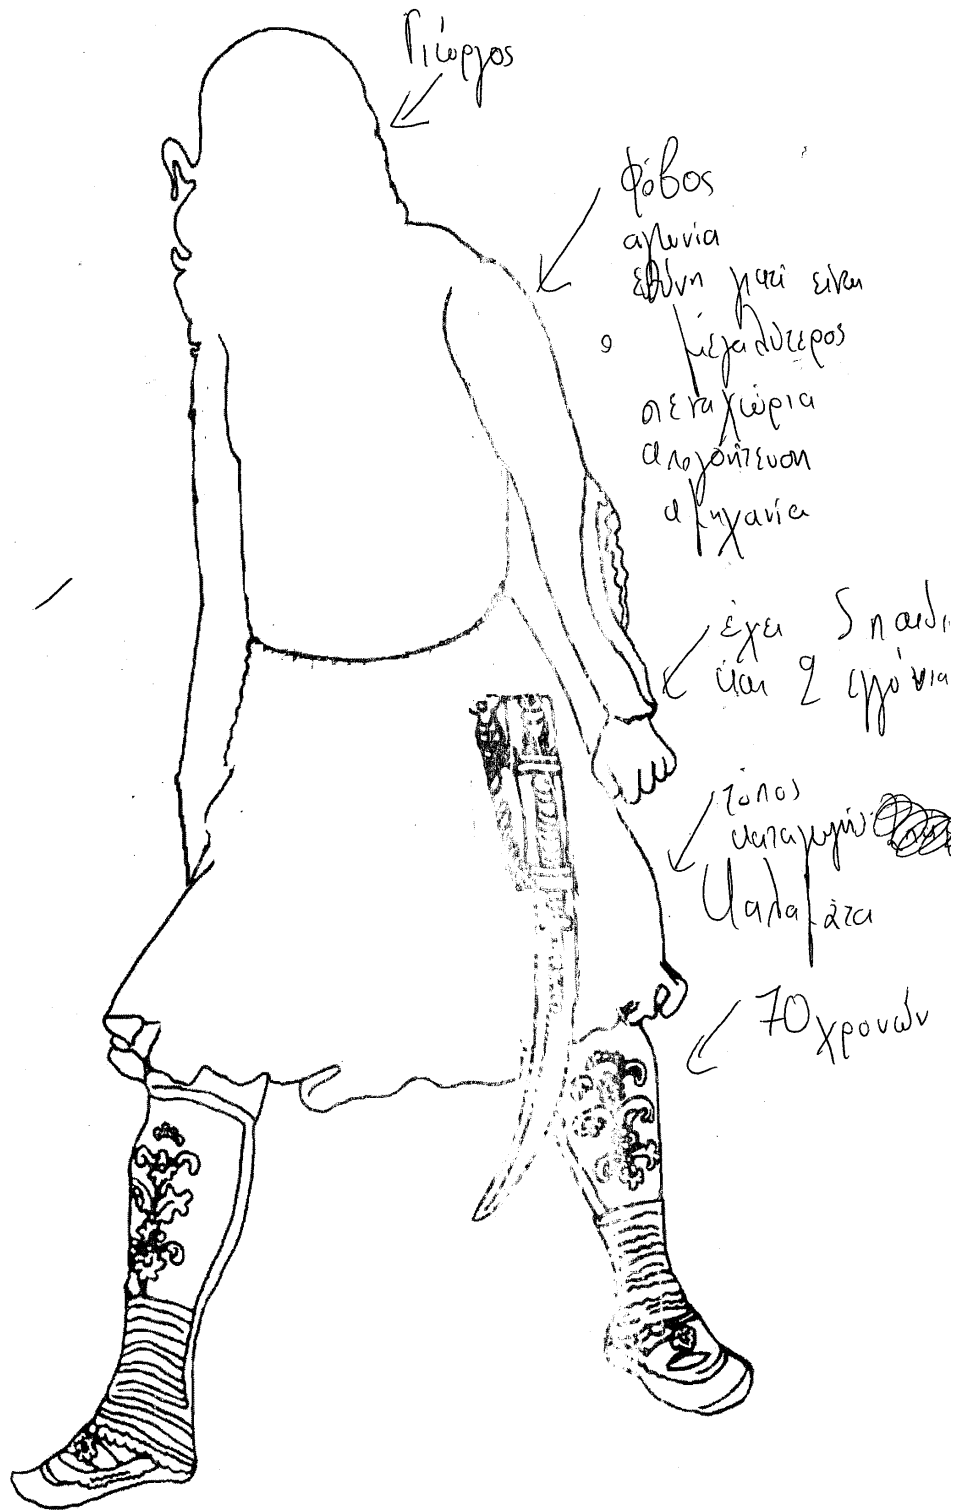 Γιώργος
Φόβος
αγωνία
ευθύνη γιατί είναι
ο μεγαλύτερος
στεναχώρια
απογοήτευση
αμηχανία
έχει 5 παιδι
και 2 εγγόνια
τόπος
καταγωγής
Καλαμάτα
70 χρονών